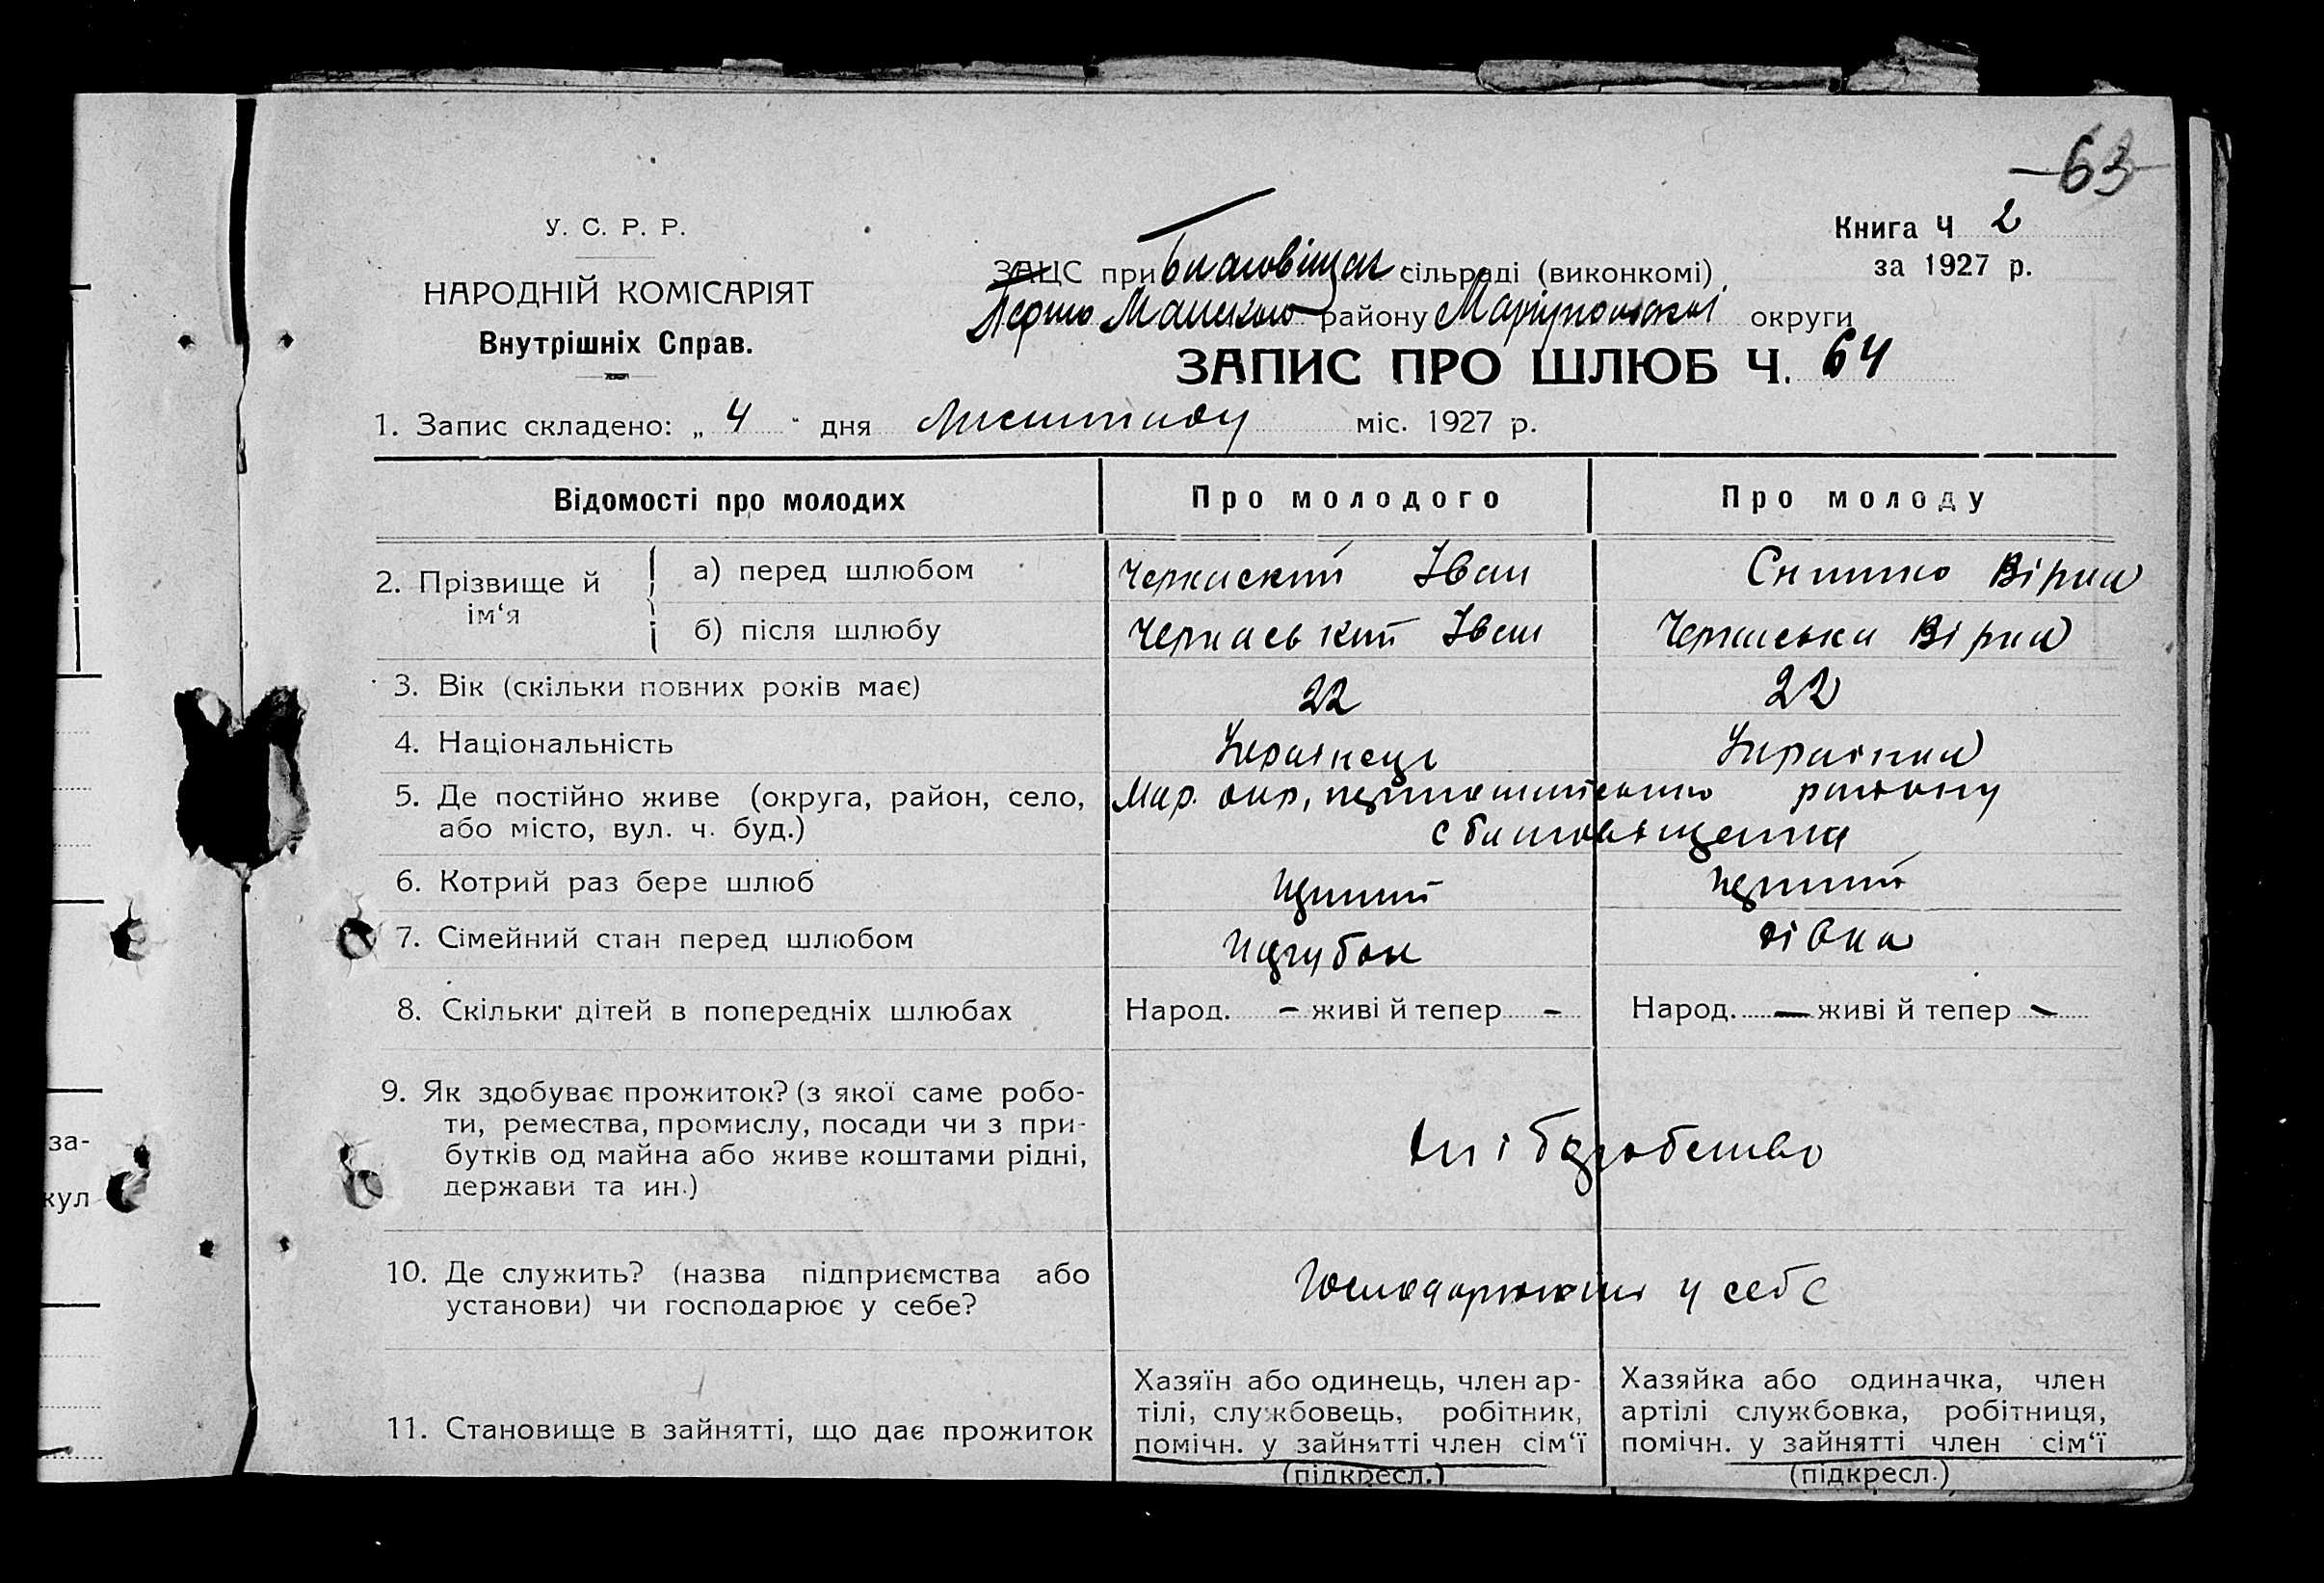 63
У. С. Р. Р.
НАРОДНІЙ КОМІСАРІЯТ
Внутрішніх Справ.
Книга Ч 2
за 1927 р.
ЗАЦС при Благовіщен сільраді (виконкомі)
Першо Майского району Маріупольської округи
ЗАПИС ПРО ШЛЮБ Ч. 64
1. Запис складено: „ 4 " дня Листопаду міс. 1927 р.
Відомості про молодих Про молодого Про молоду
2. Прізвище й ім‘я
а) перед шлюбом Черкаский Іван Снишко Вірка
б) після шлюбу Черкаський Іван Черкаська Вірка
3. Вік (скільки повних років має) 22 22
4. Національність Українець Українка
5. Де постійно живе (округа, район, село, Мар. окр, першомайського району
або місто, вул. ч. буд.) с благовіщенка
6. Котрий раз бере шлюб перший перший
7. Сімейний стан перед шлюбом парубок дівка
8. Скільки дітей в попередніх шлюбах Народ. – живі й тепер – Народ. — живі й тепер –
9. Як здобуває прожиток? (з якої саме робо-
ти, ремества, промислу, посади чи з при-
бутків од майна або живе коштами рідні,
держави та ин.)
хліборобство
10. Де служить? (назва підприємства або
установи) чи господарює у себе?
Господарюють у себе
11. Становище в зайнятті, що дає прожиток
Хазяїн або одинець, член ар-
тілі, службовець, робітник,
помічн. у зайнятті член сім‘ї
(підкресл.)
Хазяйка або одиначка, член
артілі службовка, робітниця,
помічн. у зайнятті член сім‘ї
(підкресл.)
за-
кул